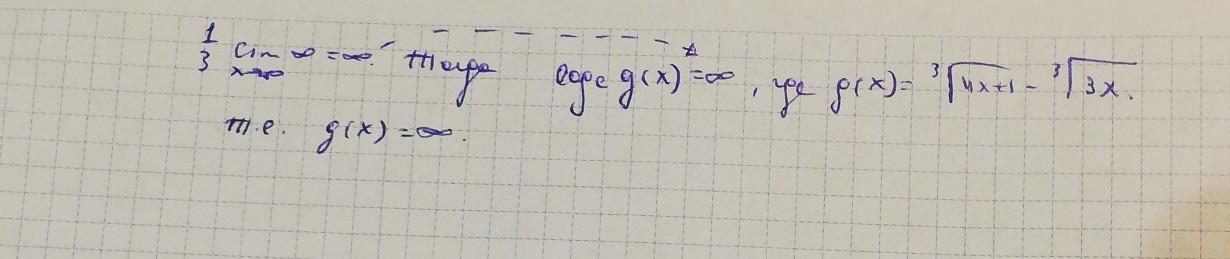 1/3 lim x→∞ ∞ = ∞. Тогда g(x) = ∞, где g(x) = ∛(4x+1) - ∛(3x).
т.е. g(x) = ∞.